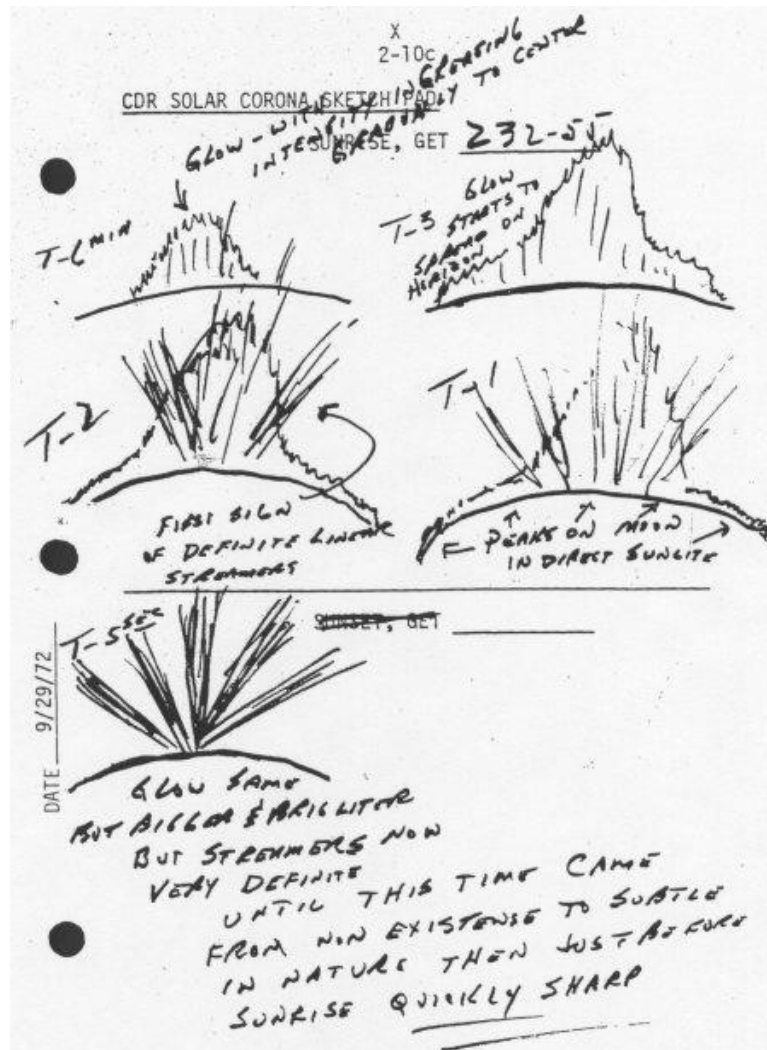 X
2-10c
CDR SOLAR CORONA SKETCH PAD
GLOW - WITH
INTENSITY INCREASING
GRADUALLY TO CENTER
SUNRISE, GET 232-55
T-6 MIN
T-3
GLOW
STARTS TO
SPREAD ON
HORIZON
T-2
T-1
FIRST SIGN
OF DEFINITE LINEAR
STREAMERS
PEAKS ON MOON
IN DIRECT SUNLITE
T-5 SEC
SUNSET, GET
DATE 9/29/72
GLOW SAME
BUT BIGGER & BRIGHTER
BUT STREAMERS NOW
VERY DEFINITE
UNTIL THIS TIME CAME
FROM NON EXISTENSE TO SUBTLE
IN NATURE THEN JUST BEFORE
SUNRISE QUICKLY SHARP